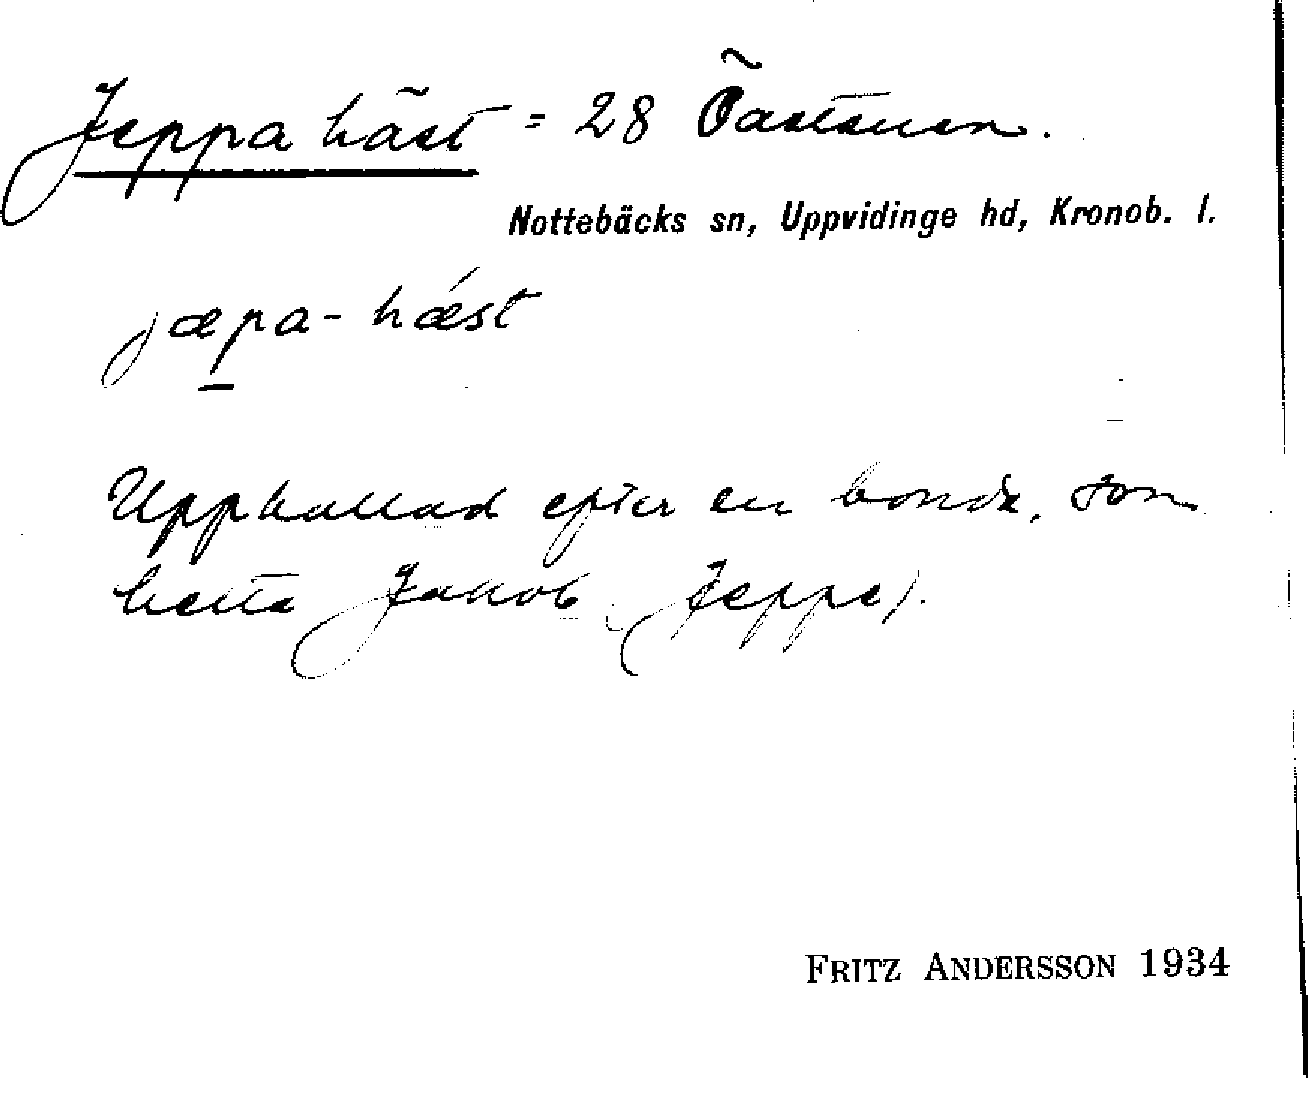 Jeppa häst = 28 Öastenen.
Nottebäcks sn, Uppvidinge hd, Kronob. l.
jæpa-hǽst
Uppkallad efter en bonde, som
hette Jakob (Jeppe).
FRITZ ANDERSSON 1934